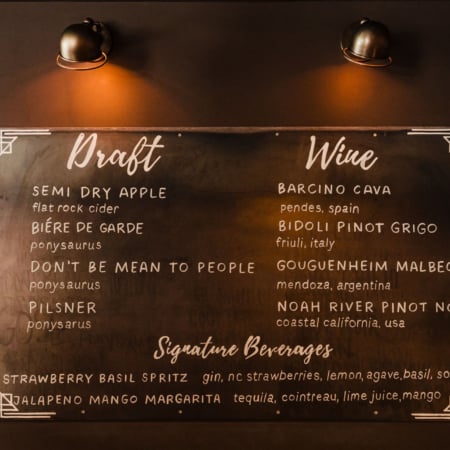 Draft
SEMI DRY APPLE
flat rock cider
BIÉRE DE GARDE
ponysaurus
DON'T BE MEAN TO PEOPLE
ponysaurus
PILSNER
ponysarus
Wine
BARCINO CAVA
pendes, spain
BIDOLI PINOT GRIGO
friuli, italy
GOUGUENHEIM MALBEC
mendoza, argentina
NOAH RIVER PINOT NO
coastal california, usa
Signature Beverages
STRAWBERRY BASIL SPRITZ gin, nc strawberries, lemon, agave, basil, so
JALAPENO MANGO MARGARITA tequila, cointreau, lime juice, mango